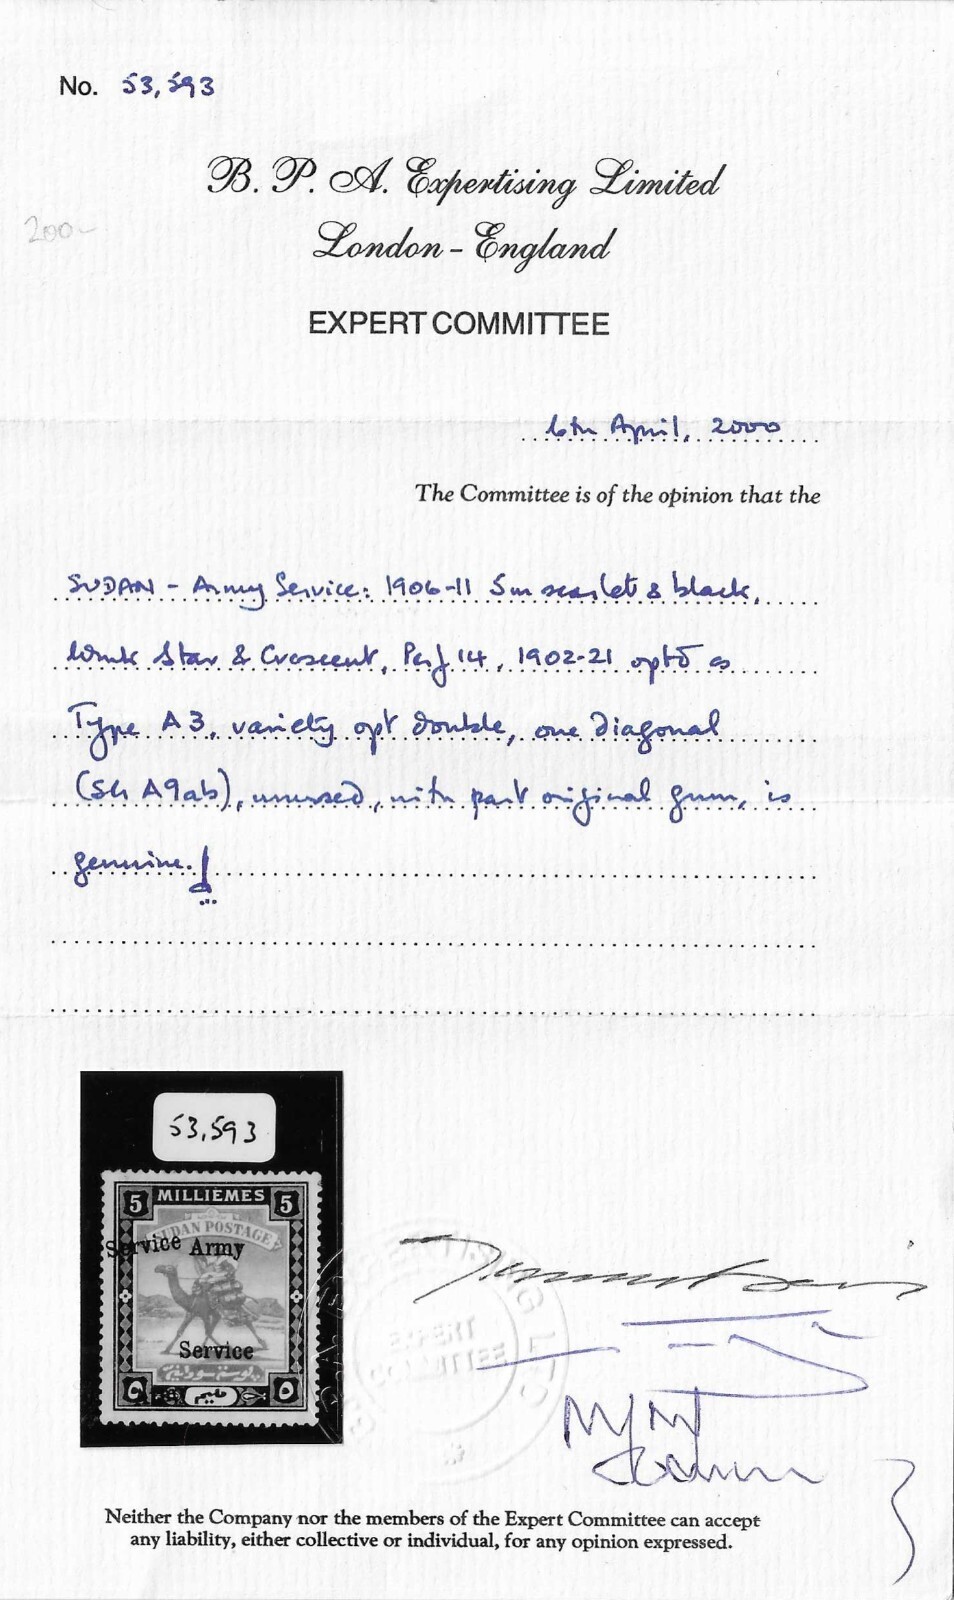 No. 53,593
B. P. A. Expertising Limited
200-
London - England
EXPERT COMMITTEE
6th April, 2000
The Committee is of the opinion that the
SUDAN - Army Service: 1906-11 5m scarlet & black,
Wmk Star & Crescent, Perf 14, 1902-21 optd as
Type A3, variety opt double, one diagonal
(SG A9ab), unused, with part original gum, is
genuine.
53,593
5 MILLIÈMES 5
SUDAN POSTAGE
Service Army
Service
Army
٥ مليم ٥
EXPERT
COMMITTEE
Neither the Company nor the members of the Expert Committee can accept
any liability, either collective or individual, for any opinion expressed.